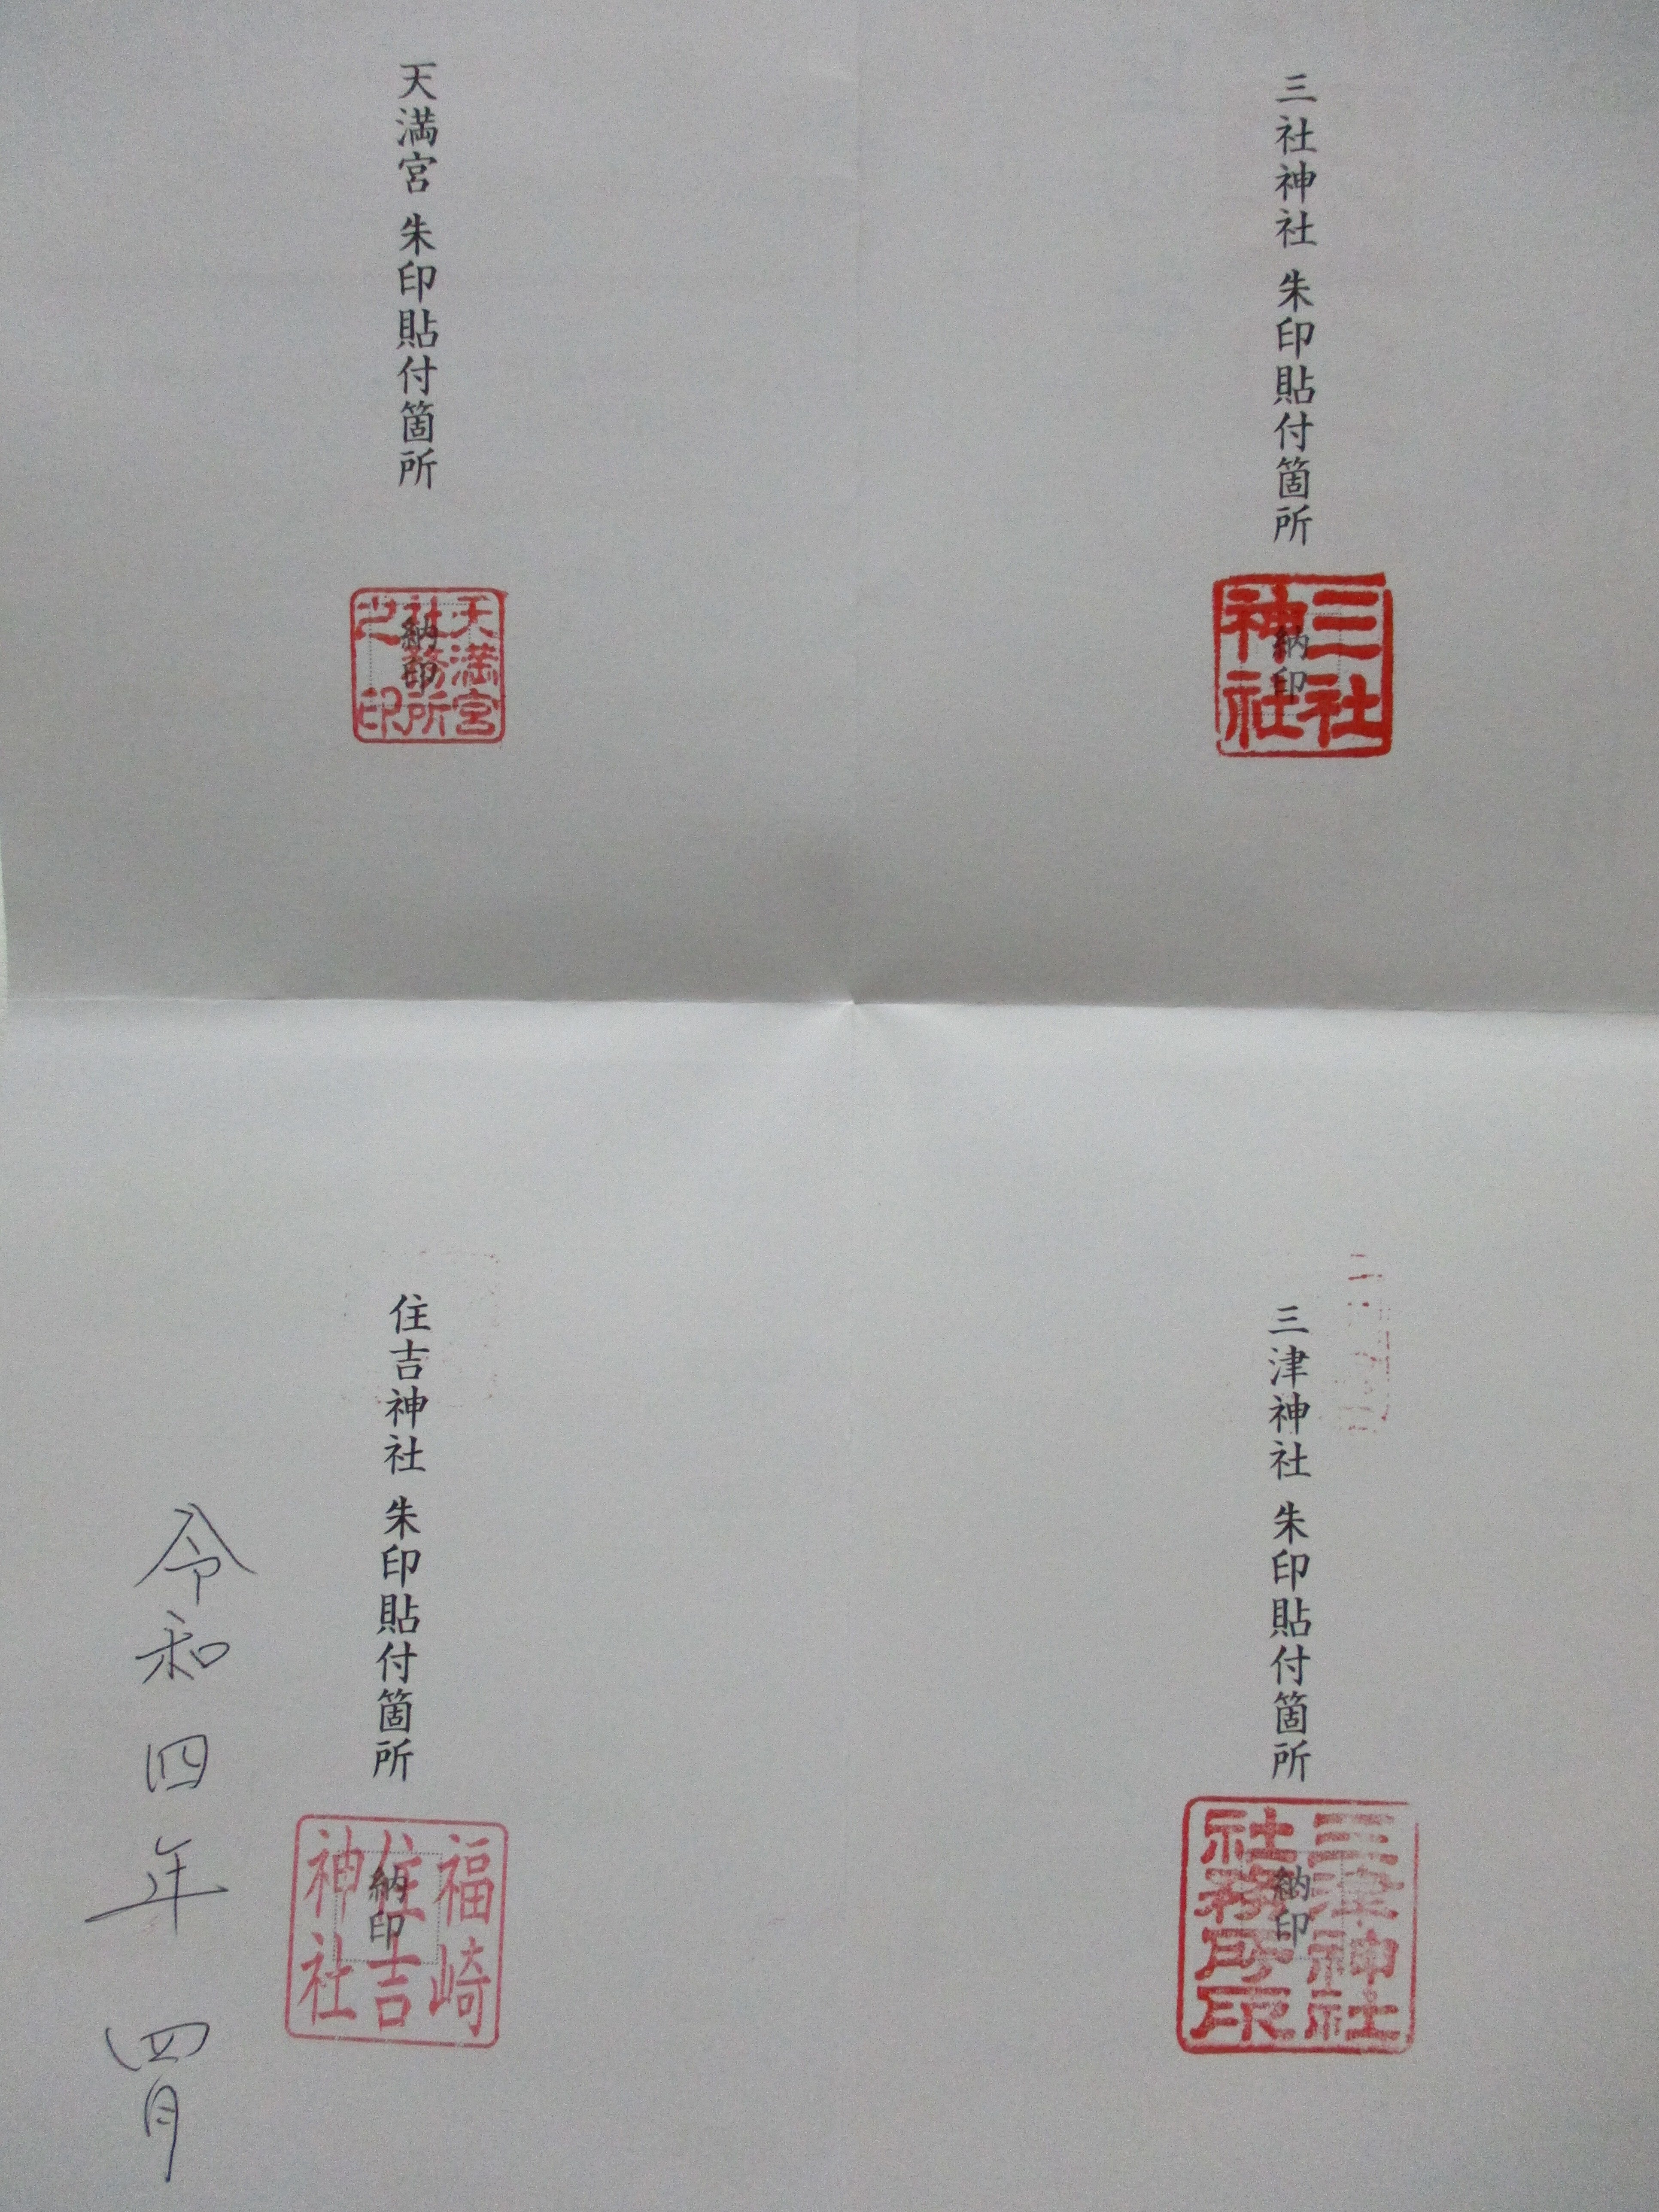 三社神社 朱印貼付箇所
納印
三社
神社
天満宮 朱印貼付箇所
納印
天満宮
社務所
之印
三津神社 朱印貼付箇所
納印
三津神社
社務所印
住吉神社 朱印貼付箇所
納印
福崎
住吉
神社
令和四年 四月